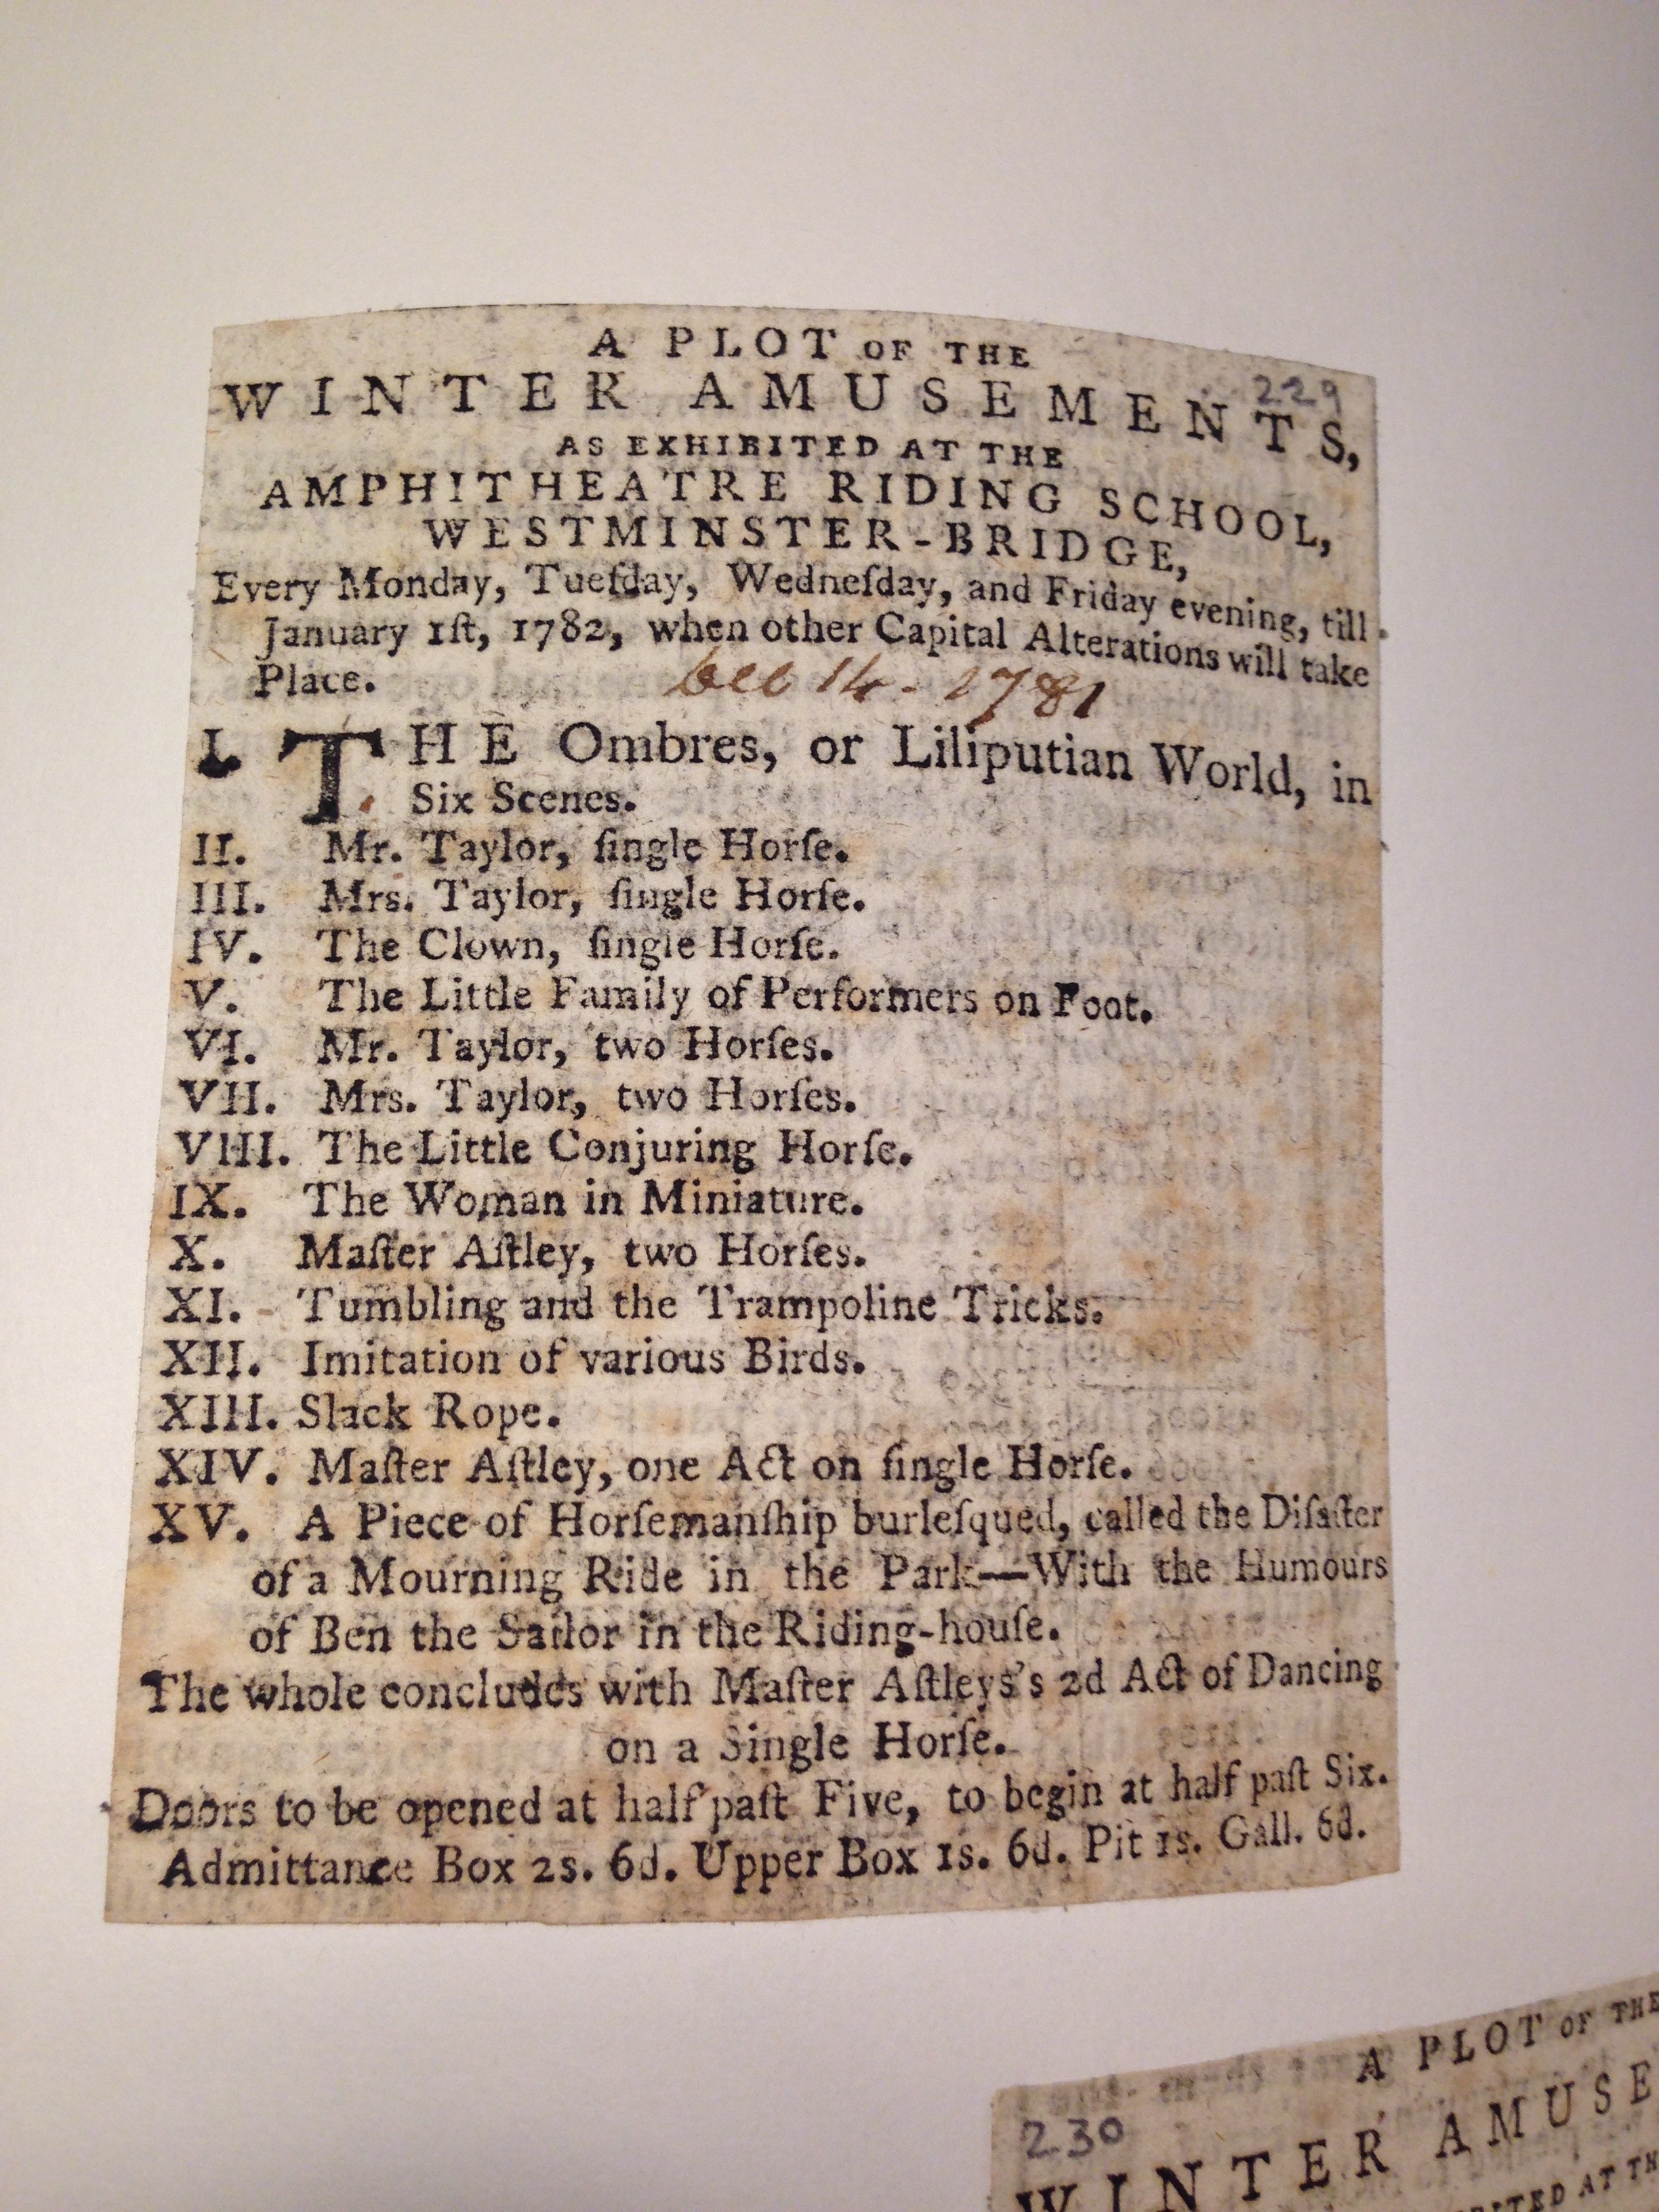 A PLOT OF THE
229
WINTER AMUSEMENTS,
AS EXHIBITED AT THE
AMPHITHEATRE RIDING SCHOOL,
WESTMINSTER-BRIDGE,
Every Monday, Tueſday, Wedneſday, and Friday evening, till
January 1ſt, 1782, when other Capital Alterations will take
Place.
Dec 14 - 1781
I. THE Ombres, or Liliputian World, in
Six Scenes.
II. Mr. Taylor, ſingle Horſe.
III. Mrs. Taylor, ſingle Horſe.
IV. The Clown, ſingle Horſe.
V. The Little Family of Performers on Foot.
VI. Mr. Taylor, two Horſes.
VII. Mrs. Taylor, two Horſes.
VIII. The Little Conjuring Horſe.
IX. The Woman in Miniature.
X. Maſter Aſtley, two Horſes.
XI. Tumbling and the Trampoline Tricks.
XII. Imitation of various Birds.
XIII. Slack Rope.
XIV. Maſter Aſtley, one Act on ſingle Horſe.
XV. A Piece of Horſemanſhip burleſqued, called the Diſaſter
of a Mourning Ride in the Park—With the Humours
of Ben the Sailor in the Riding-houſe.
The whole concludes with Maſter Aſtleys's 2d Act of Dancing
on a Single Horſe.
Doors to be opened at half paſt Five, to begin at half paſt Six.
Admittance Box 2s. 6d. Upper Box 1s. 6d. Pit 1s. Gall. 6d.
A PLOT OF THE
230
WINTER AMUSE
AT TH